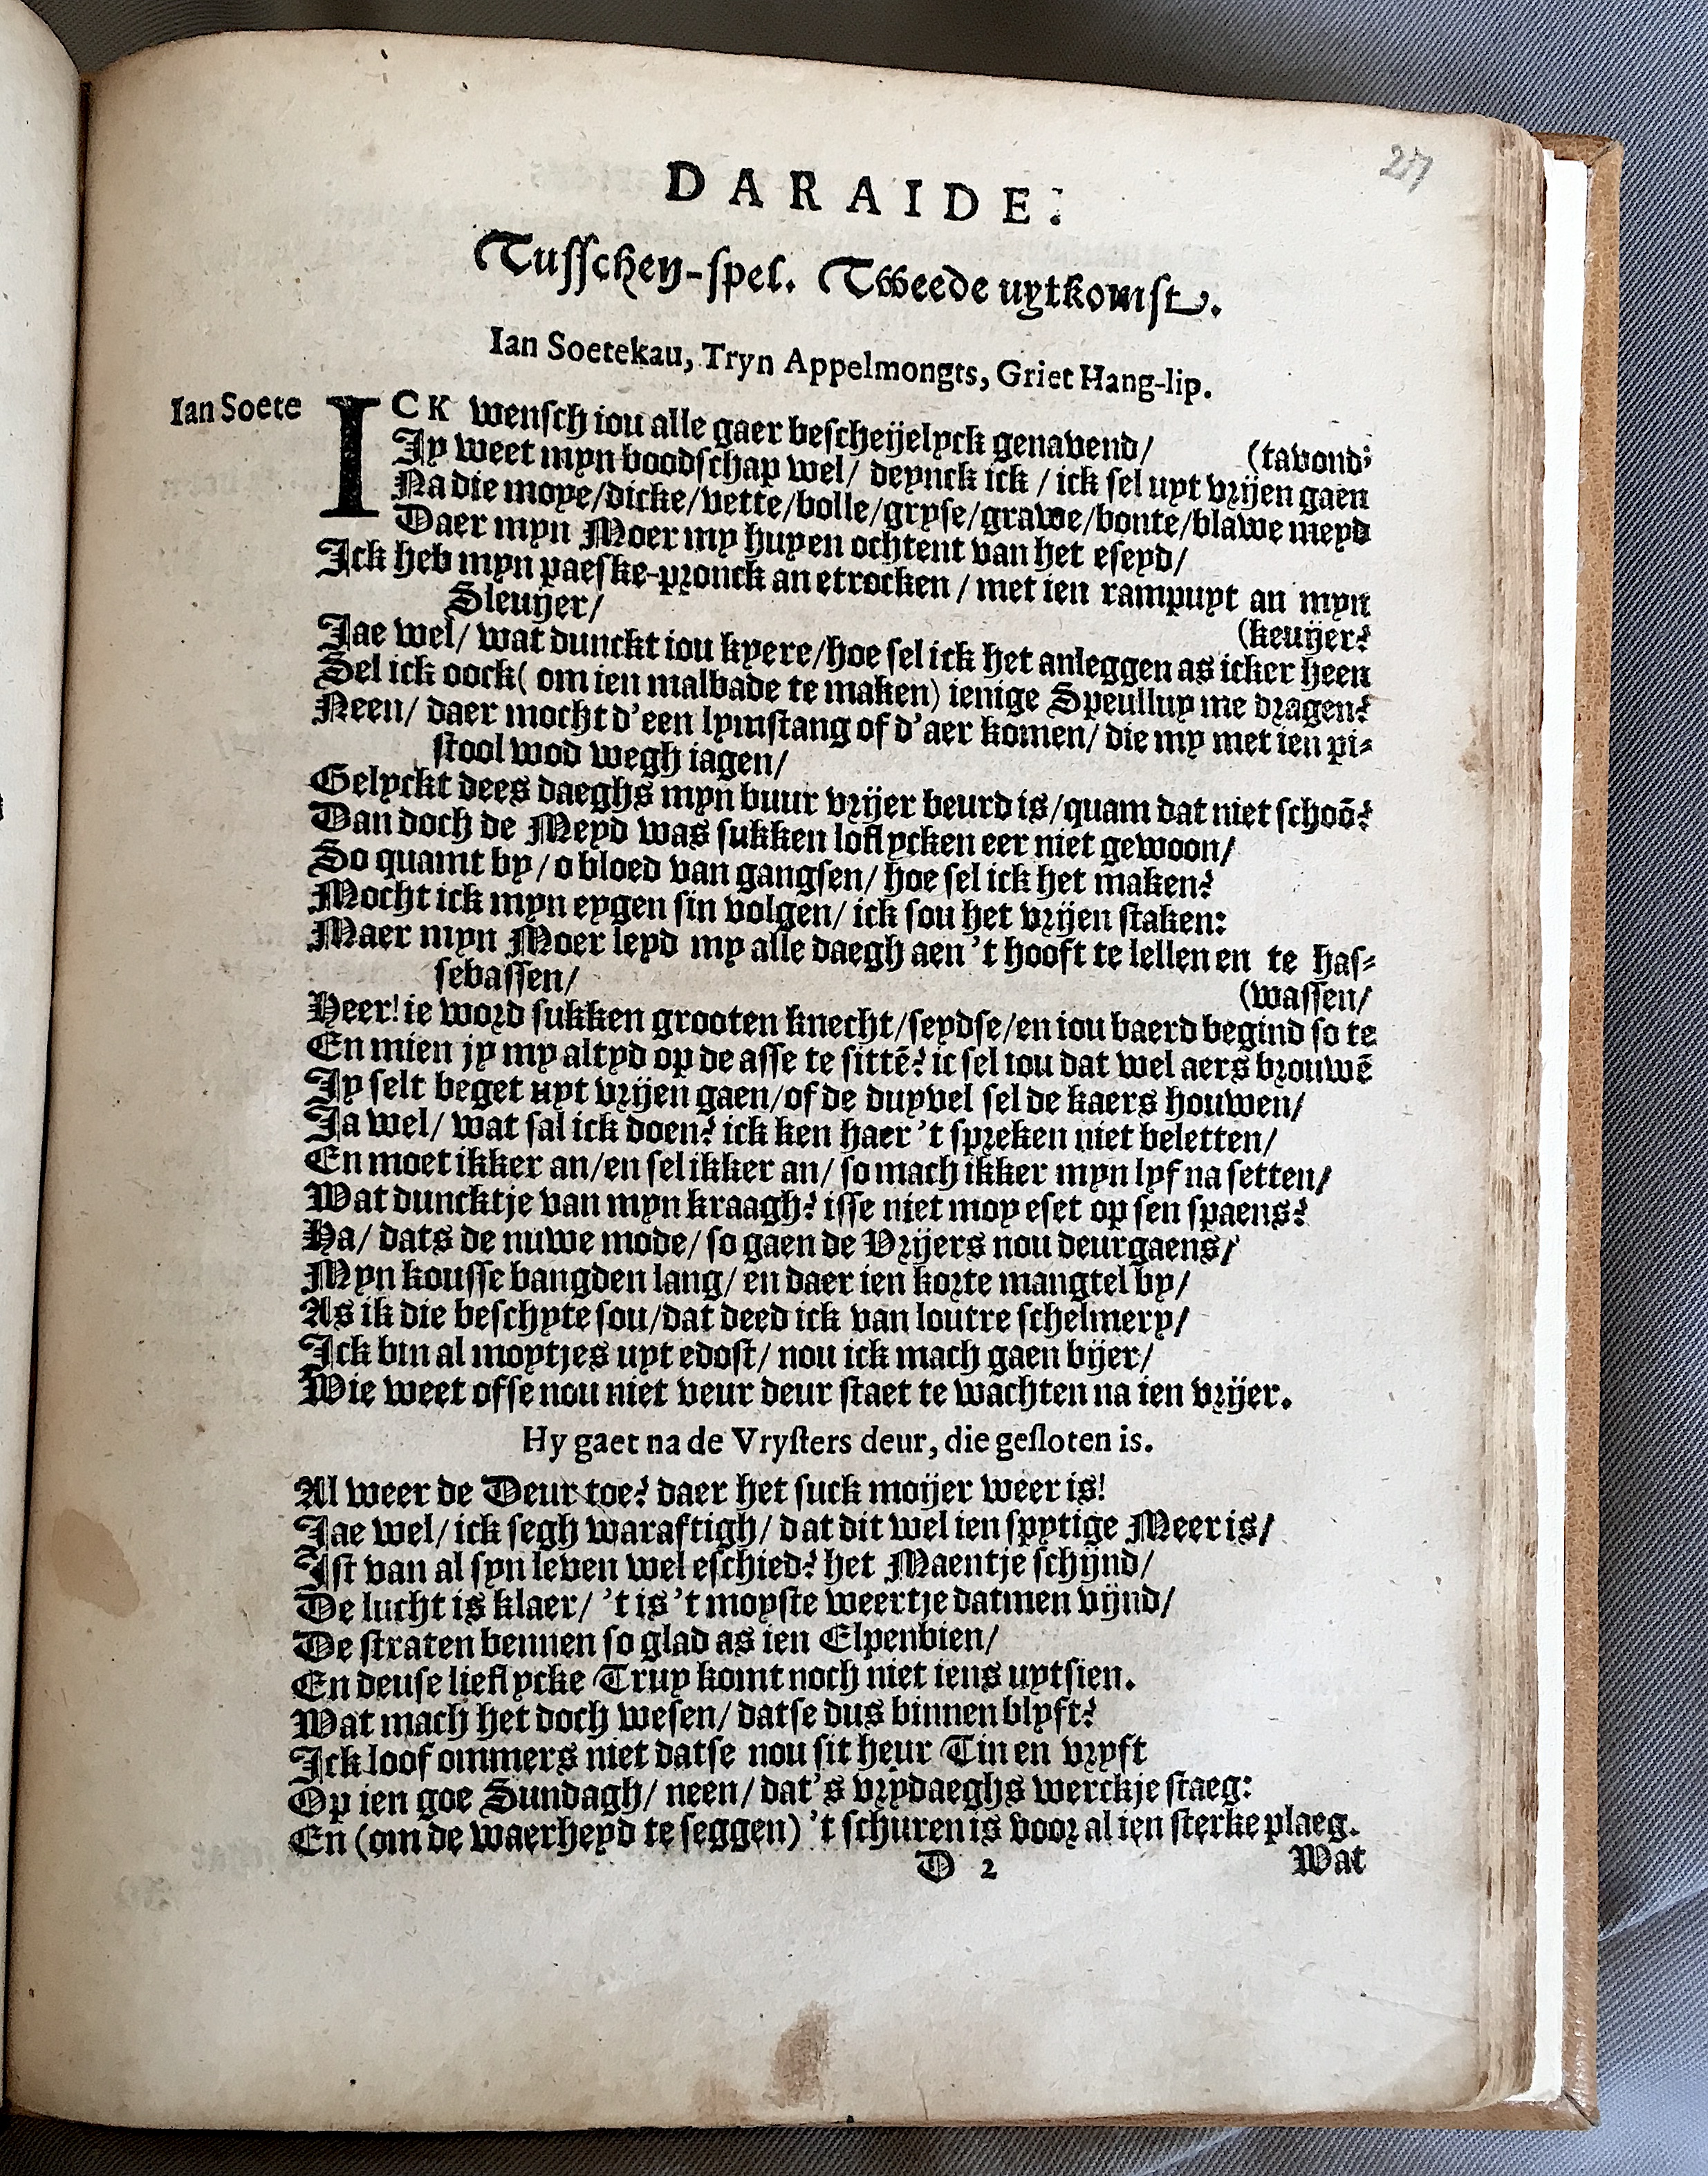 27
DARAIDE.
Tusschen-spel. Tweede uytkomst.
Ian Soetekau, Tryn Appelmongts, Griet Hang-lip.
Ian Soete
ICK wensch iou alle gaer bescheijelyck genavend/ (tavond;
Jy weet myn boodschap wel/ deynck ick / ick sel uyt vrijen gaen
Na die moye/dicke/vette/bolle/gryse/grawe/bonte/blawe meyd
Daer myn Moer my huyen ochtent van het eseyd/
Ick heb myn paeske-pronck an etrocken / met ien rampuyt an myn
Sleuijer/ (keuijer?
Jae wel/ wat dunckt iou kyere/hoe sel ick het anleggen as icker heen
Sel ick oock( om ien malbade te maken) ienige Speulluy me dragen?
Neen/ daer mocht d'een lymstang of d'aer komen/ die my met ien pi-
stool wod wegh iagen/
Gelyckt dees daeghs myn buur vrijer beurd is/quam dat niet schoõ?
Dan doch de Meyd was sukken loflycken eer niet gewoon/
So quamt by/ o bloed van gangsen/ hoe sel ick het maken?
Mocht ick myn eygen sin volgen/ ick sou het vrijen staken:
Maer myn Moer leyd my alle daegh aen 't hooft te lellen en te has-
sebassen/ (wassen/
Heer! ie word sukken grooten knecht/seydse/en iou baerd begind so te
En mien jy my altyd op de asse te sittẽ? ic sel iou dat wel aers brouwẽ
Jy selt beget uyt vrijen gaen/of de duyvel sel de kaers houwen/
Ja wel/ wat sal ick doen? ick ken haer 't spreken niet beletten/
En moet ikker an/en sel ikker an/ so mach ikker myn lyf na setten/
Wat duncktje van myn kraagh? isse niet moy eset op sen spaens?
Ha/ dats de nuwe mode/ so gaen de Vrijers nou deurgaens/
Myn kousse bangden lang/ en daer ien korte mangtel by/
As ik die beschyte sou/dat deed ick van loutre schelmery/
Ick bin al moytjes uyt edost/ nou ick mach gaen bijer/
Wie weet ofse nou niet veur deur staet te wachten na ien vrijer.
Hy gaet na de Vrysters deur, die gesloten is.
Al weer de Deur toe? daer het suck moijer weer is!
Jae wel/ ick segh waraftigh/ dat dit wel ien spytige Meer is/
Ist van al syn leven wel eschied? het Maentje schijnd/
De lucht is klaer/ 't is 't moyste weertje datmen vijnd/
De straten bennen so glad as ien Elpenbien/
En deuse lieflycke Truy komt noch niet iens uytsien.
Wat mach het doch wesen/ datse dus binnen blyft?
Ick loof ommers niet datse nou sit heur Tin en vryft
Op ien goe Sundagh/ neen/ dat's vrydaeghs werckje staeg:
En (om de waerheyd te seggen) 't schuren is voor al ien sterke plaeg.
D 2 Wat